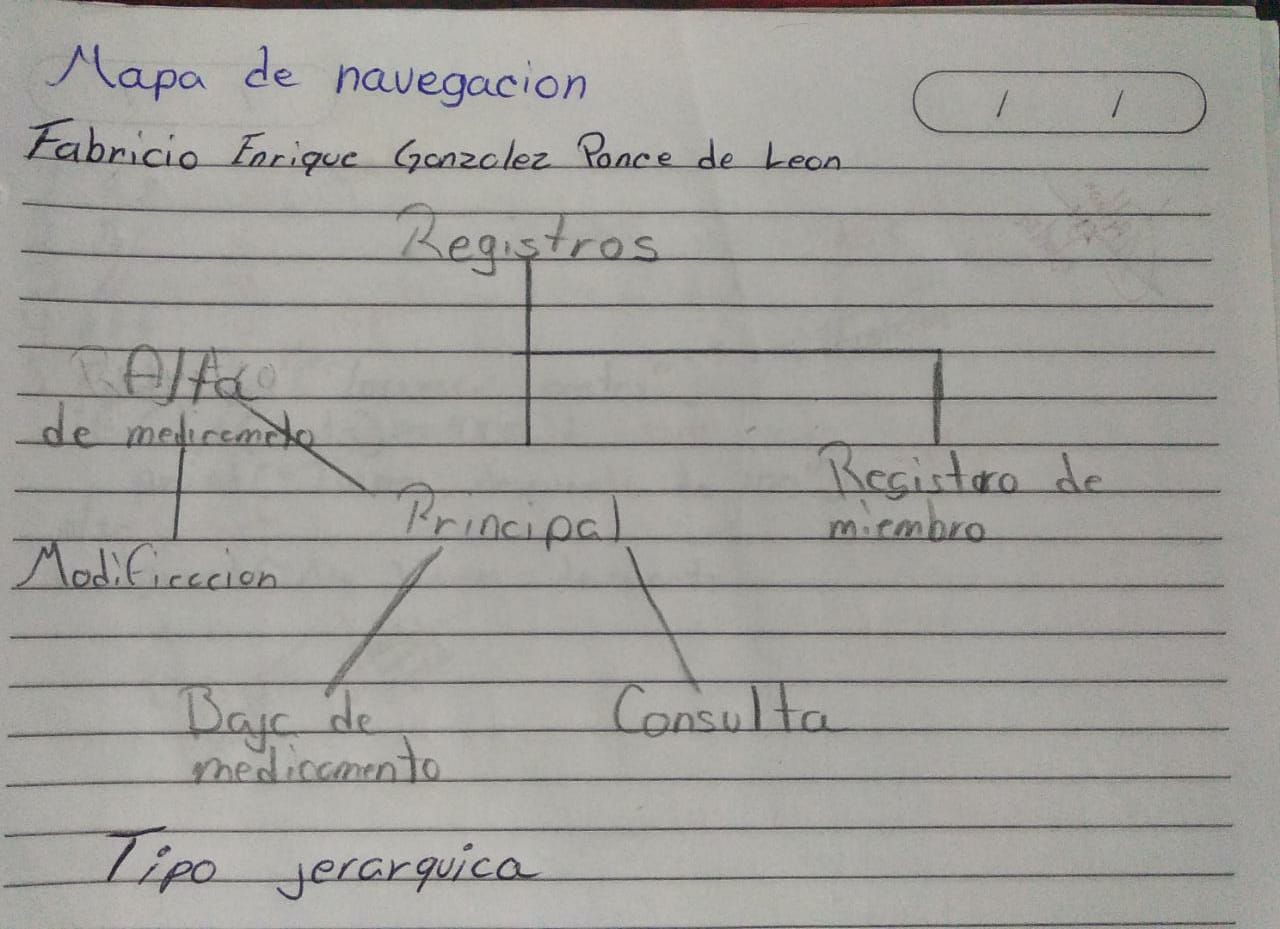 Mapa de navegacion
/ /
Fabricio Enrique Gonzalez Ponce de Leon
Registros
Alta
de medicameto
Registro de
miembro
Principal
Modificacion
Baja de
medicamento
Consulta
Tipo jerarquica